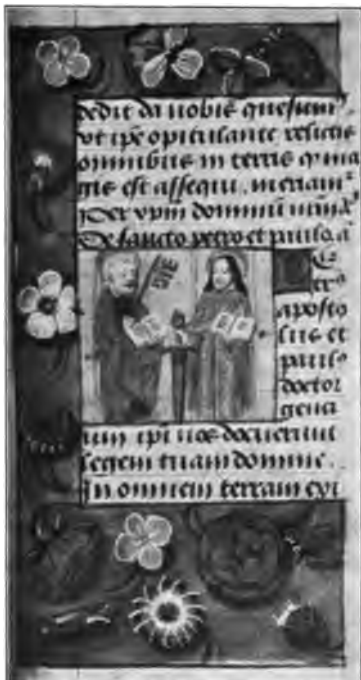 dedit da nobis quesum9
vt ip̄e opitulante relictis
omnibus in terris q̄ ma
gis est assequi. mereamr̄
Per xp̄m dominū nr̄m.
De sancto petro et paulo. a
Petrꝰ
aposto
lus et
pauls
doctor
genci
um ip̄i nos docuerunt
legem tuam domine.
In omnem terram exi